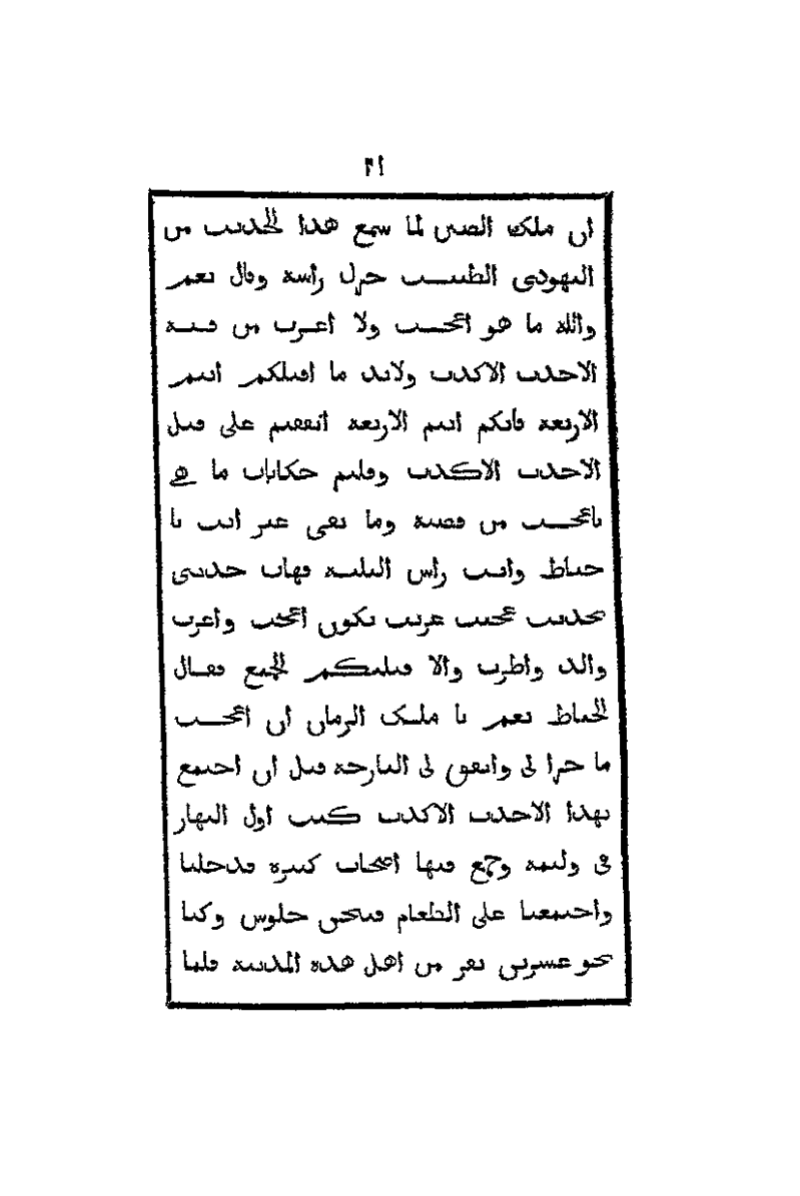 ٢١
ان ملك الصين لما سمع هذا الحديث من
اليهودى الطبيب حرك راسه وقال نعم
والله ما هو اعجب ولا اغرب من قصة
الاحدب الاكدب ولابد ما اقتلكم انتم
الاربعة فانكم انتم الاربعة اتفقتم على قتل
الاحدب الاكدب وقلتم حكايات ما هى
باعجب من قصته وما بقى غير انت يا
خياط وانت راس البلية فهات حدثنى
بحديث عجيب غريب يكون اعجب واغرب
والذ واطرب والا قتلتكم الجميع فقال
الخياط نعم يا ملك الزمان ان اعجب
ما جرا لى واتفق لى البارحة قبل ان اجتمع
بهذا الاحدب الاكدب كنت اول النهار
فى وليمة وجمع فيها اصحاب كثيرة فدخلنا
واجتمعنا على الطعام فنحن جلوس وكنا
نحو عشرين نفر من اهل هذه المدينة فلما